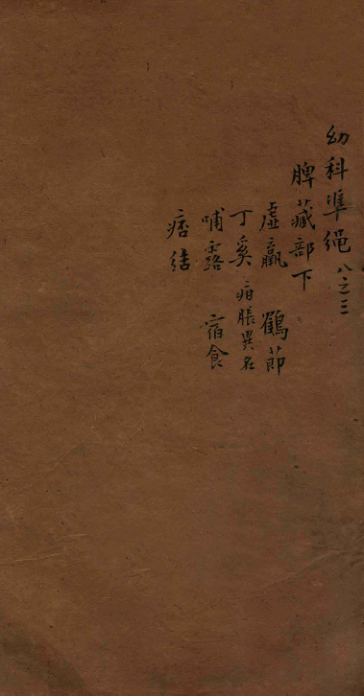 幼科準绳 八之三
脾藏部下
虛羸 鶴節
丁奚 疳脹異名
哺露 宿食
痞结